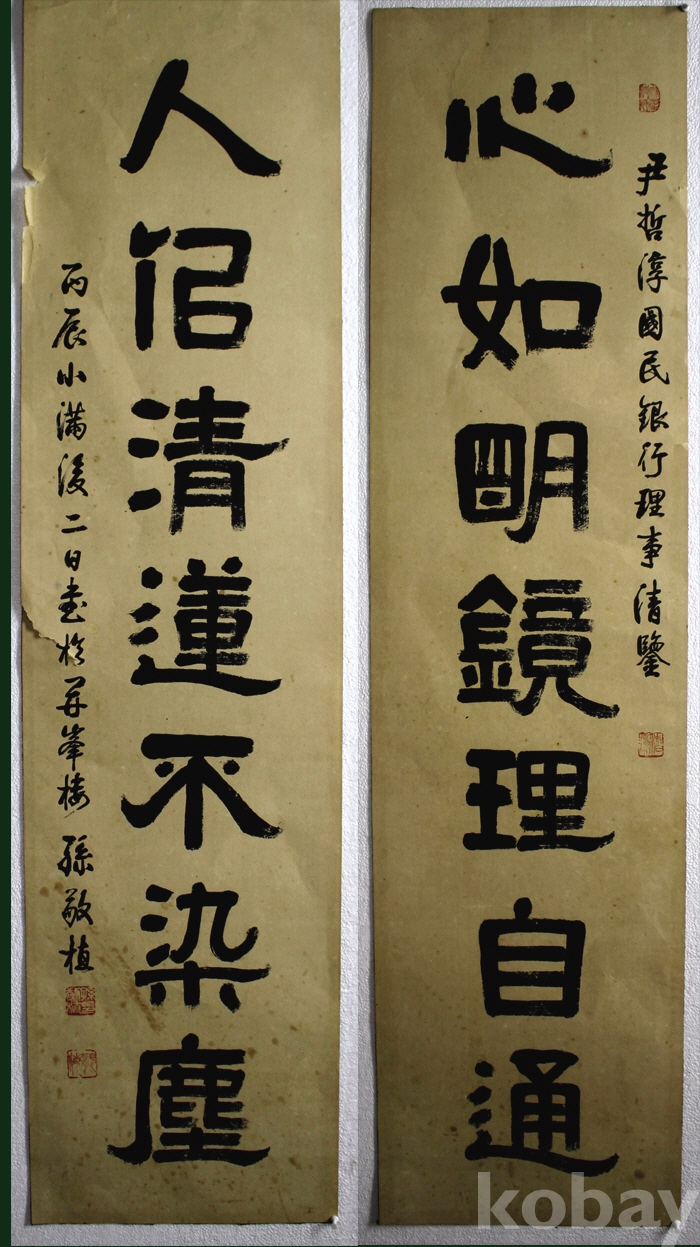 尹哲淳國民銀行理事清鑒
心如朙鏡理自通
人佀清蓮不染塵
丙辰小滿後二日書於峯樓 孫敬植
kobay